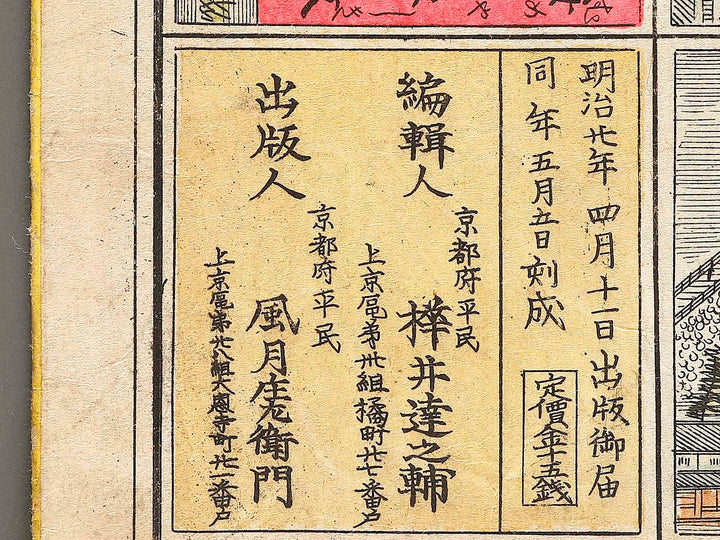 明治廿年 四月十一日出版御届
同 年 五月五日刻成
定價金十五錢
編輯人
京都府平民
樺井達之輔
上京區第卅組橘町廿七番戸
出版人
京都府平民
風月庄左衛門
上京區第廿八組大恩寺町廿一番戸